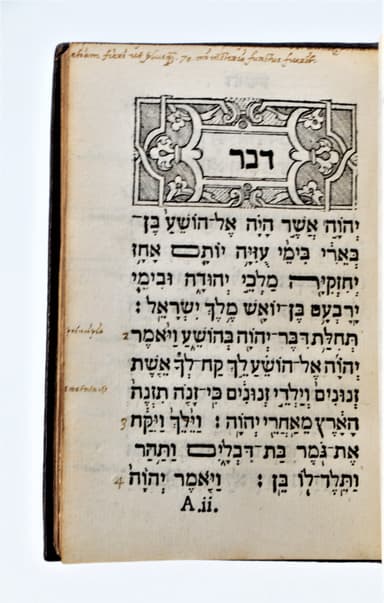 functus fuerit
דבר
יְהוָה אֲשֶׁר הָיָה אֶל־הוֹשֵׁעַ בֶּן־
בְּאֵרִי בִּימֵי עֻזִּיָּה יוֹתָם אָחָז
יְחִזְקִיָּה מַלְכֵי יְהוּדָה וּבִימֵי
יָרָבְעָם בֶּן־יוֹאָשׁ מֶלֶךְ יִשְׂרָאֵל׃
2 תְּחִלַּת דִּבֶּר־יְהוָה בְּהוֹשֵׁעַ וַיֹּאמֶר
יְהוָה אֶל־הוֹשֵׁעַ לֵךְ קַח־לְךָ אֵשֶׁת
זְנוּנִים וְיַלְדֵי זְנוּנִים כִּי־זָנֹה תִזְנֶה
הָאָרֶץ מֵאַחֲרֵי יְהוָה׃ 3 וַיֵּלֶךְ וַיִּקַּח
אֶת־גֹּמֶר בַּת־דִּבְלָיִם וַתַּהַר
וַתֵּלֶד־לוֹ בֵּן׃ 4 וַיֹּאמֶר יְהוָה
A.ii.